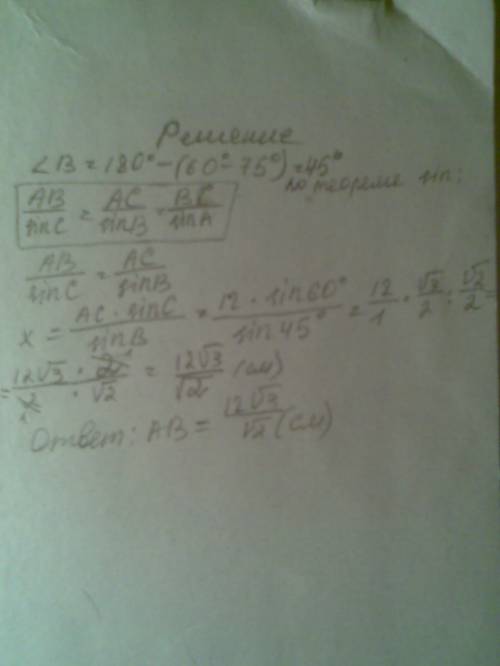 Решение
∠B = 180° - (60° - 75°) = 45°
по теореме sin:
AB/sinC = AC/sinB = BC/sinA
AB/sinC = AC/sinB
x = AC · sinC/sinB = 12 · sin60°/sin45° = 12/1 · √3/2 : √2/2 =
= 12√3 · 2/2 · √2 = 12√3/√2 (см)
Ответ: AB = 12√3/√2 (см)